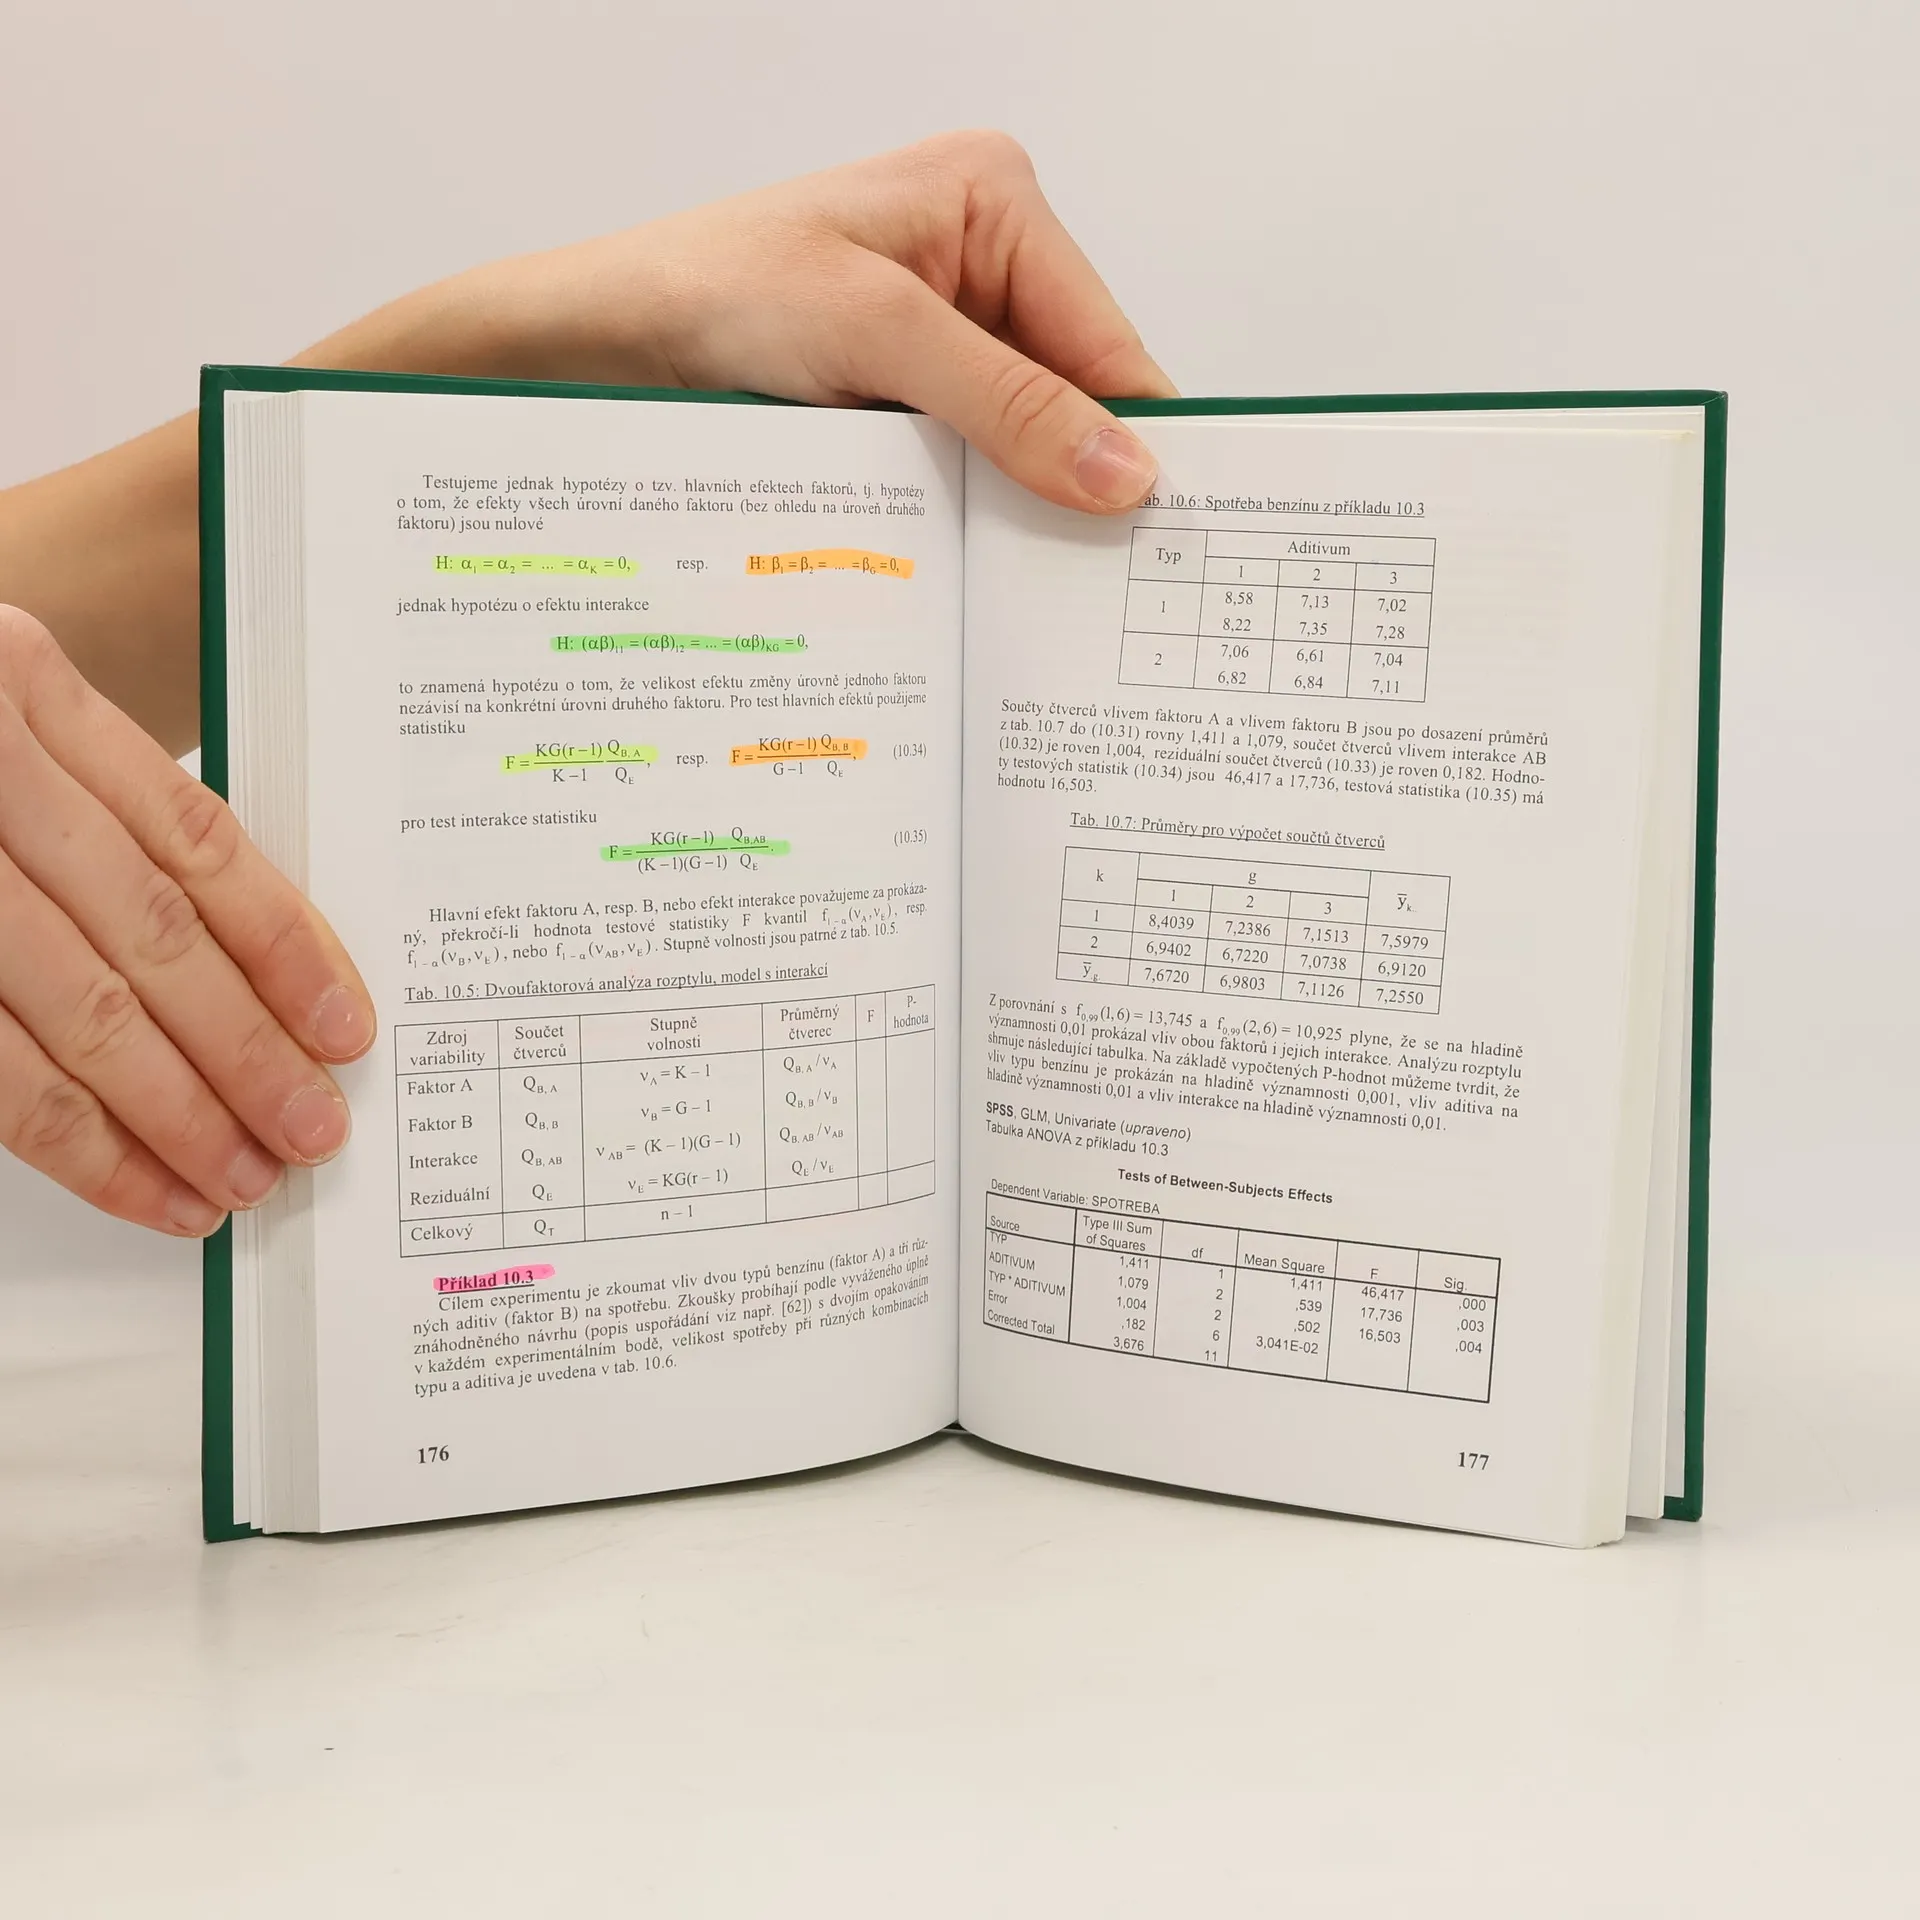 Testujeme jednak hypotézy o tzv. hlavních efektech faktorů, tj. hypotézy
o tom, že efekty všech úrovní daného faktoru (bez ohledu na úroveň druhého
faktoru) jsou nulové
H: α₁ = α₂ = ... = α_K = 0, resp. H: β₁ = β₂ = ... = β_G = 0,
jednak hypotézu o efektu interakce
H: (αβ)₁₁ = (αβ)₁₂ = ... = (αβ)_KG = 0,
to znamená hypotézu o tom, že velikost efektu změny úrovně jednoho faktoru
nezávisí na konkrétní úrovni druhého faktoru. Pro test hlavních efektů použijeme
statistiku
F = KG(r−1)/(K−1) Q_B,A/Q_E, resp. F = KG(r−1)/(G−1) Q_B,B/Q_E, (10.34)
pro test interakce statistiku
F = KG(r−1)/((K−1)(G−1)) Q_B,AB/Q_E. (10.35)
Hlavní efekt faktoru A, resp. B, nebo efekt interakce považujeme za prokáza-
ný, překročí-li hodnota testové statistiky F kvantil f_1−α(ν_A,ν_E), resp.
f_1−α(ν_B,ν_E), nebo f_1−α(ν_AB,ν_E). Stupně volnosti jsou patrné z tab. 10.5.
Tab. 10.5: Dvoufaktorová analýza rozptylu, model s interakcí
Zdroj variability Součet čtverců Stupně volnosti Průměrný čtverec F P-hodnota
Faktor A Q_B,A ν_A = K − 1 Q_B,A/ν_A
Faktor B Q_B,B ν_B = G − 1 Q_B,B/ν_B
Interakce Q_B,AB ν_AB = (K − 1)(G − 1) Q_B,AB/ν_AB
Reziduální Q_E ν_E = KG(r − 1) Q_E/ν_E
Celkový Q_T n − 1
Příklad 10.3
Cílem experimentu je zkoumat vliv dvou typů benzínu (faktor A) a tří růz-
ných aditiv (faktor B) na spotřebu. Zkoušky probíhají podle vyváženého úplně
znáhodněného návrhu (popis uspořádání viz např. [62]) s dvojím opakováním
v každém experimentálním bodě, velikost spotřeby při různých kombinacích
typu a aditiva je uvedena v tab. 10.6.
176
ab. 10.6: Spotřeba benzínu z příkladu 10.3
Typ Aditivum
1 2 3
1 8,58 7,13 7,02
8,22 7,35 7,28
2 7,06 6,61 7,04
6,82 6,84 7,11
Součty čtverců vlivem faktoru A a vlivem faktoru B jsou po dosazení průměrů
z tab. 10.7 do (10.31) rovny 1,411 a 1,079, součet čtverců vlivem interakce AB
(10.32) je roven 1,004, reziduální součet čtverců (10.33) je roven 0,182. Hodno-
ty testových statistik (10.34) jsou 46,417 a 17,736, testová statistika (10.35) má
hodnotu 16,503.
Tab. 10.7: Průměry pro výpočet součtů čtverců
k g ȳ_k.
1 2 3
1 8,4039 7,2386 7,1513 7,5979
2 6,9402 6,7220 7,0738 6,9120
ȳ_.g. 7,6720 6,9803 7,1126 7,2550
Z porovnání s f_0,99(1,6) = 13,745 a f_0,99(2,6) = 10,925 plyne, že se na hladině
významnosti 0,01 prokázal vliv obou faktorů i jejich interakce. Analýzu rozptylu
shrnuje následující tabulka. Na základě vypočtených P-hodnot můžeme tvrdit, že
vliv typu benzínu je prokázán na hladině významnosti 0,001, vliv aditiva na
hladině významnosti 0,01 a vliv interakce na hladině významnosti 0,01.
SPSS, GLM, Univariate (upraveno)
Tabulka ANOVA z příkladu 10.3
Tests of Between-Subjects Effects
Dependent Variable: SPOTREBA
Source Type III Sum of Squares df Mean Square F Sig.
TYP 1,411 1 1,411 46,417 ,000
ADITIVUM 1,079 2 ,539 17,736 ,003
TYP * ADITIVUM 1,004 2 ,502 16,503 ,004
Error ,182 6 3,041E-02
Corrected Total 3,676 11
177